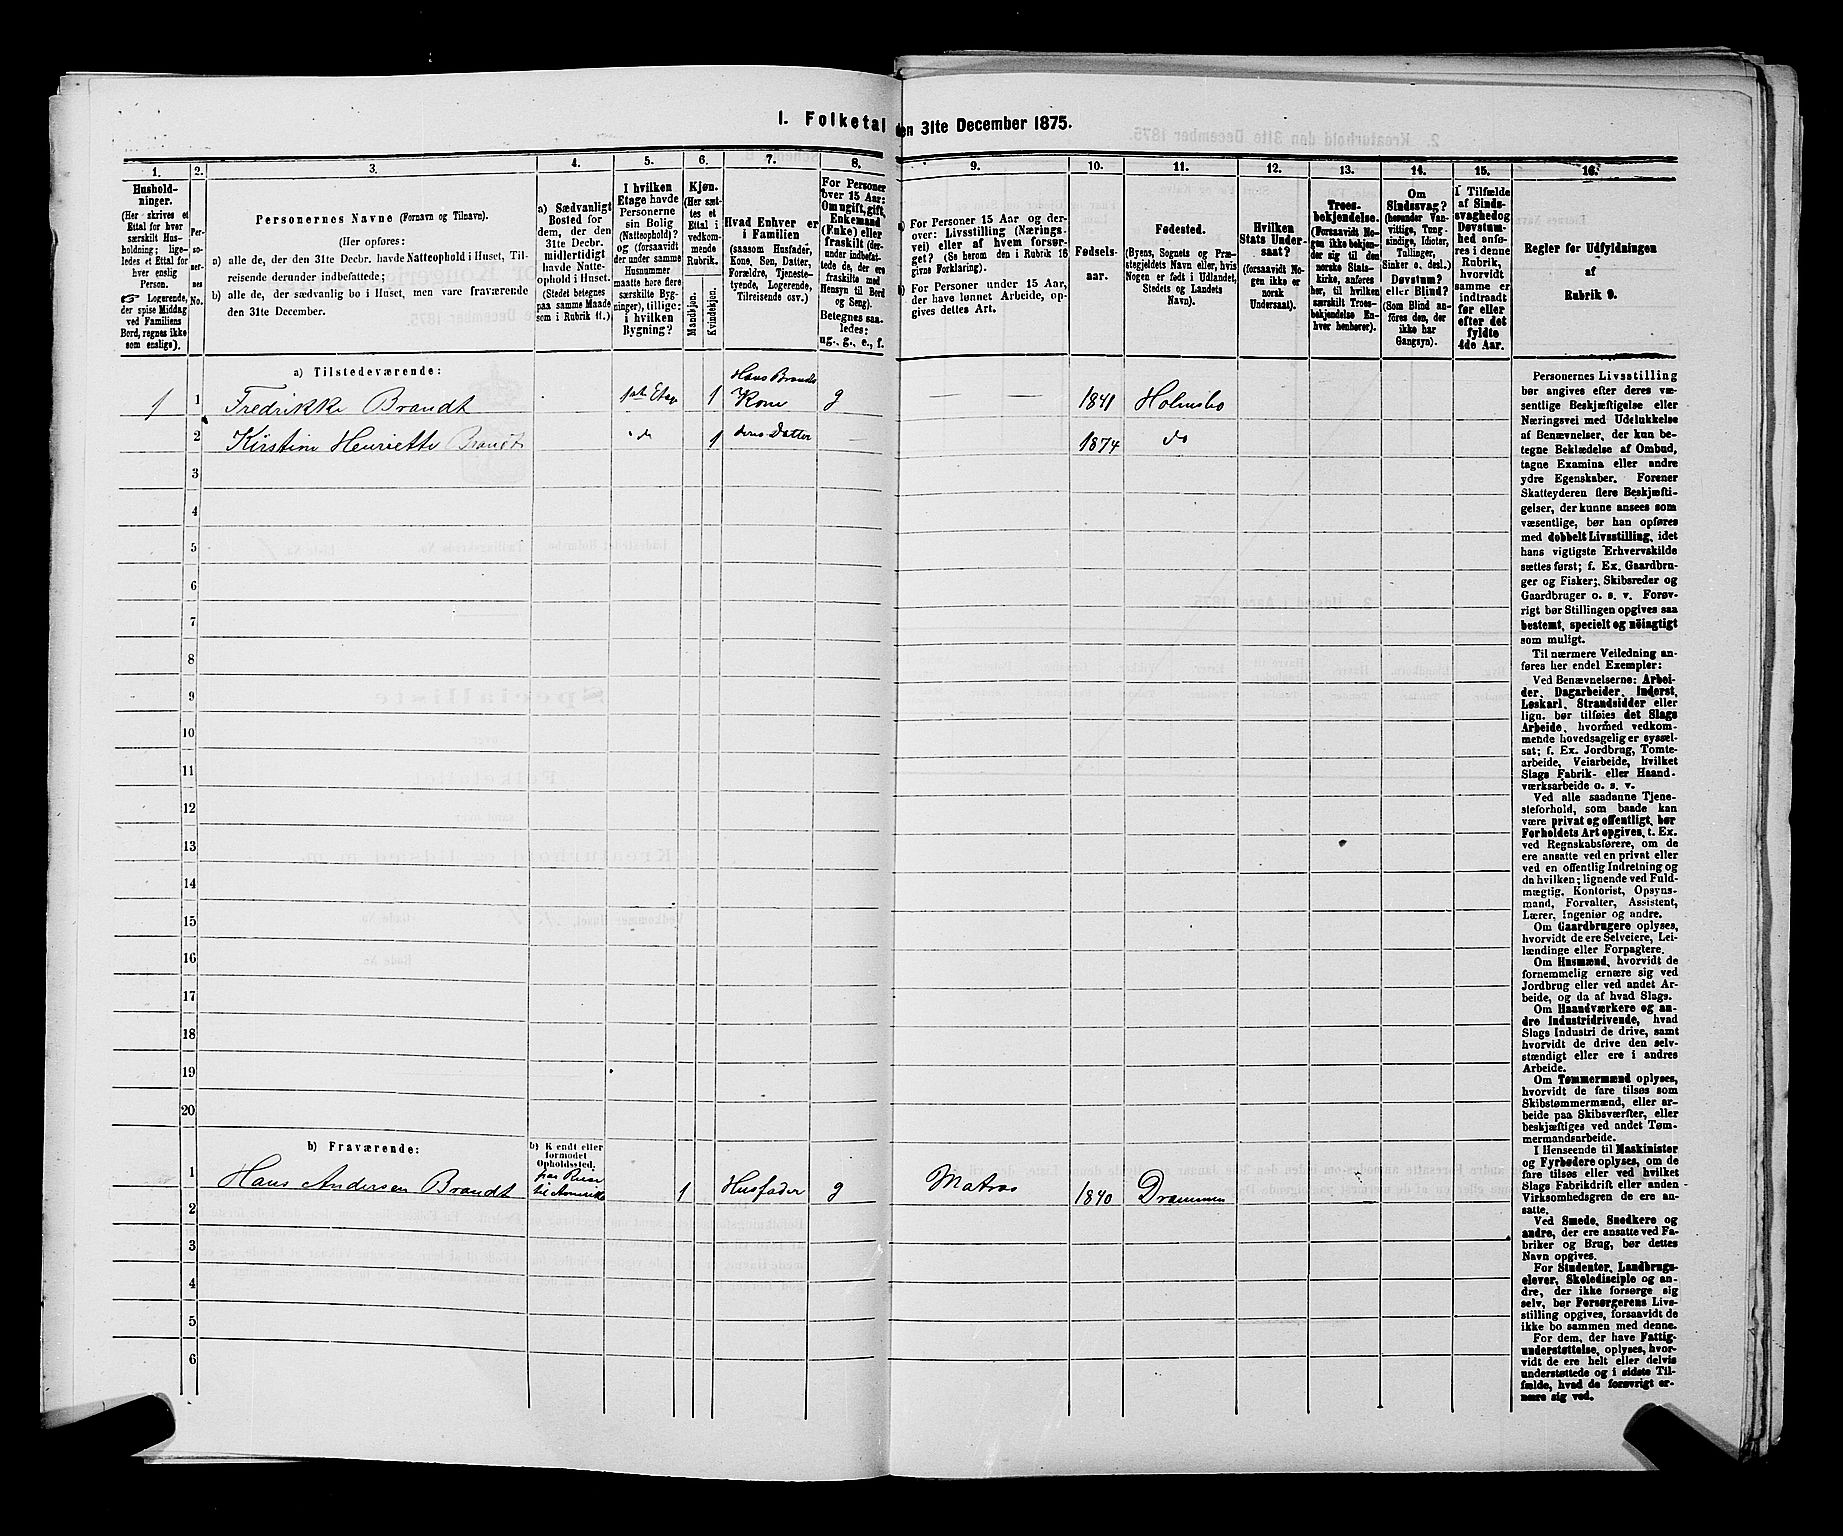 1. Folketal den 31te December 1875.
1. 2. 3. 4. 5. 6. 7. 8. 9. 10. 11. 12. 13. 14. 15. 16.
Hushold-
ninger.
(Her skrives et
Ettal for hver
særskilt Hus-
holdning; lige-
ledes et Ettal for
hver enslig
Person.
☞ Logerende,
der spise Middag
ved Familiens
Bord, regnes ikke
som enslige).
Per-
so-
ner-
nes
No.
Personernes Navne (Fornavn og Tilnavn).
(Her opføres:
a) alle de, der den 31te Decbr. havde Natteophold i Huset, Til-
reisende derunder indbefattede;
b) alle de, der sædvanlig bo i Huset, men vare fraværende
den 31te December.
a) Sædvanligt
Bosted for
dem, der den
31te Decbr.
midlertidigt
havde Natte-
ophold i Huset.
(Stedet betegnes
paa samme Maade
som i Rubrik 11.)
I hvilken
Etage havde
Personerne
sin Bolig
(Natteophold)?
og (forsaavidt
der under samme
Husnummer
maatte høre flere
særskilte Byg-
ninger), tillige:
i hvilken
Bygning?
Kjøn.
(Her sæt-
tes et
Ettal i
vedkom-
mende
Rubrik.
Mandkjøn.
Kvindekjøn.
Hvad Enhver er
i Familien
(saasom Husfader,
Kone, Søn, Datter,
Forældre, Tjeneste-
tyende, Logerende,
Tilreisende osv.)
For Personer
over 15 Aar:
Om ugift, gift,
Enkemand
(Enke) eller
fraskilt (der-
under indbefat-
tede de, der ere
fraskilte med
Hensyn til Bord
og Seng).
Betegnes saa-
ledes:
ug., g., e., f.
a) For Personer 15 Aar og der-
over: Livsstilling (Nærings-
vei) eller af hvem forsør-
get? (Se herom den i Rubrik 16
givne Forklaring).
b) For Personer under 15 Aar,
der have lønnet Arbeide, op-
gives dettes Art.
Fødsels-
aar.
Fødested.
(Byens, Sognets og Præ-
stegjeldets Navn, eller, hvis
Nogen er født i Udlandet,
Stedets og Landets
Navn).
Hvilken
Stats Under-
saat?
(forsaavidt No-
gen ikke er
norsk
Undersaat).
Troes-
bekjendelse.
(Forsaavidt No-
gen ikke bekjen-
der sig til den
norske Stats-
kirke, anføres
her, til hvilken
særskilt Troes-
bekjendelse En-
hver henhører).
Om
Sindssvag?
(herunder Van-
vittige, Tung-
sindige, Idioter,
Tullinger,
Sinker o. desl.)
Døvstum?
eller Blind?
(Som Blind an-
føres den, der
ikke har
Gangsyn).
I Tilfælde
af Sinds-
svaghed og
Døvstum-
hed anfø-
res i denne
Rubrik,
hvorvidt
samme er
indtraadt
før eller
efter det
fyldte
4de Aar.
Regler for Udfyldningen
af
Rubrik 9.
a) Tilstedeværende:
1 1 Fredrikke Brandt 1ste Etage 1 Hans Brandts Kone g — — 1841 Holmsbo
2 Kirstine Henriette Brandt do 1 deres Datter — 1874 do
3
4
5
6
7
8
9
10
11
12
13
14
15
16
17
18
19
20
b) Fraværende:
b) Kjendt eller
formodet
Opholdssted.
1 Hans Andersen Brandt paa Reise til Amerika 1 Husfader g Matros 1840 Drammen
2
3
4
5
6
Personernes Livsstilling
bør angives efter deres væ-
sentlige Beskjæftigelse eller
Næringsvei med Udelukkelse
af Benævnelser, der kun be-
tegne Beklædelse af Ombud,
tagne Examina eller andre
ydre Egenskaber. Forener
Skatteyderen flere Beskjæfti-
gelser, der kunne ansees som
væsentlige, bør han opføres
med dobbelt Livsstilling, idet
hans vigtigste Erhvervskilde
sættes først; f. Ex. Gaardbru-
ger og Fisker; Skibsreder og
Gaardbruger o. s. v. Forøv-
rigt bør Stillingen opgives saa
bestemt, specielt og nöiagtigt
som muligt.
Til nærmere Veiledning an-
føres her endel Exempler:
Ved Benævnelserne: Arbei-
der, Dagarbeider, Inderst,
Løskarl, Strandsidder eller
lign. bør tilføies det Slags
Arbeide, hvormed vedkom-
mende hovedsagelig er syssel-
sat; f. Ex. Jordbrug, Tomte-
arbeide, Veiarbeide, hvilket
Slags Fabrik- eller Haand-
værksarbeide o. s. v.
Ved alle saadanne Tjene-
steforhold, som baade kan
være privat og offentligt, bør
Forholdets Art opgives, t. Ex.
ved Regnskabsførere, om de
ere ansatte ved en privat eller
ved en offentlig Indretning og
da hvilken; lignende ved Fuld-
mægtig, Kontorist, Opsyns-
mand, Forvalter, Assistent,
Lærer, Ingeniør og andre.
Om Gaardbrugere oplyses,
hvorvidt de ere Selveiere, Lei-
lændinge eller Forpagtere.
Om Husmænd, hvorvidt de
fornemmelig ernære sig ved
Jordbrug eller ved andet Ar-
beide, og da af hvad Slags.
Om Haandværkere og an-
dre Industridrivende, hvad
Slags Industri de drive, samt
hvorvidt de drive den selv-
stændigt eller ere i andres
Arbeide.
Om Tømmermænd oplyses,
hvorvidt de fare tilsøs som
Skibstømmermænd, eller ar-
beide paa Skibsværfter, eller
beskjæftiges ved andet Tøm-
mermandsarbeide.
I Henseende til Maskinister
og Fyrbødere oplyses, om de
fare tilsøs eller ved hvilket
Slags Fabrikdrift eller anden
Virksomhedsgren de ere an-
satte.
Ved Smede, Snedkere og
andre, der ere ansatte ved Fa-
briker og Brug, bør dettes
Navn opgives.
For Studenter, Landbrugs-
elever, Skoledisciple og an-
dre, der ikke forsørge sig
selv, bør Forsørgerens Livs-
stilling opgives, forsaavidt de
ikke bo sammen med denne.
For dem, der have Fattig-
understøttelse, oplyses, hvor-
vidt de ere helt eller delvis
understøttede og i sidste Til-
fælde, hvad de forøvrigt er-
nære sig ved.